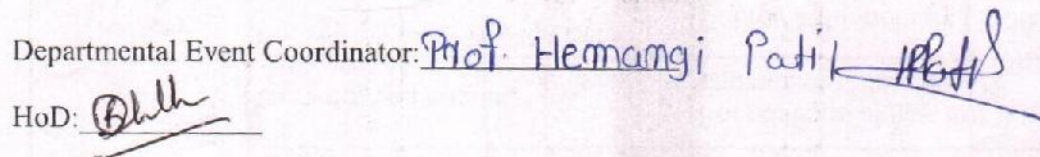 Departmental Event Coordinator: Prof. Hemangi Patil
HoD: